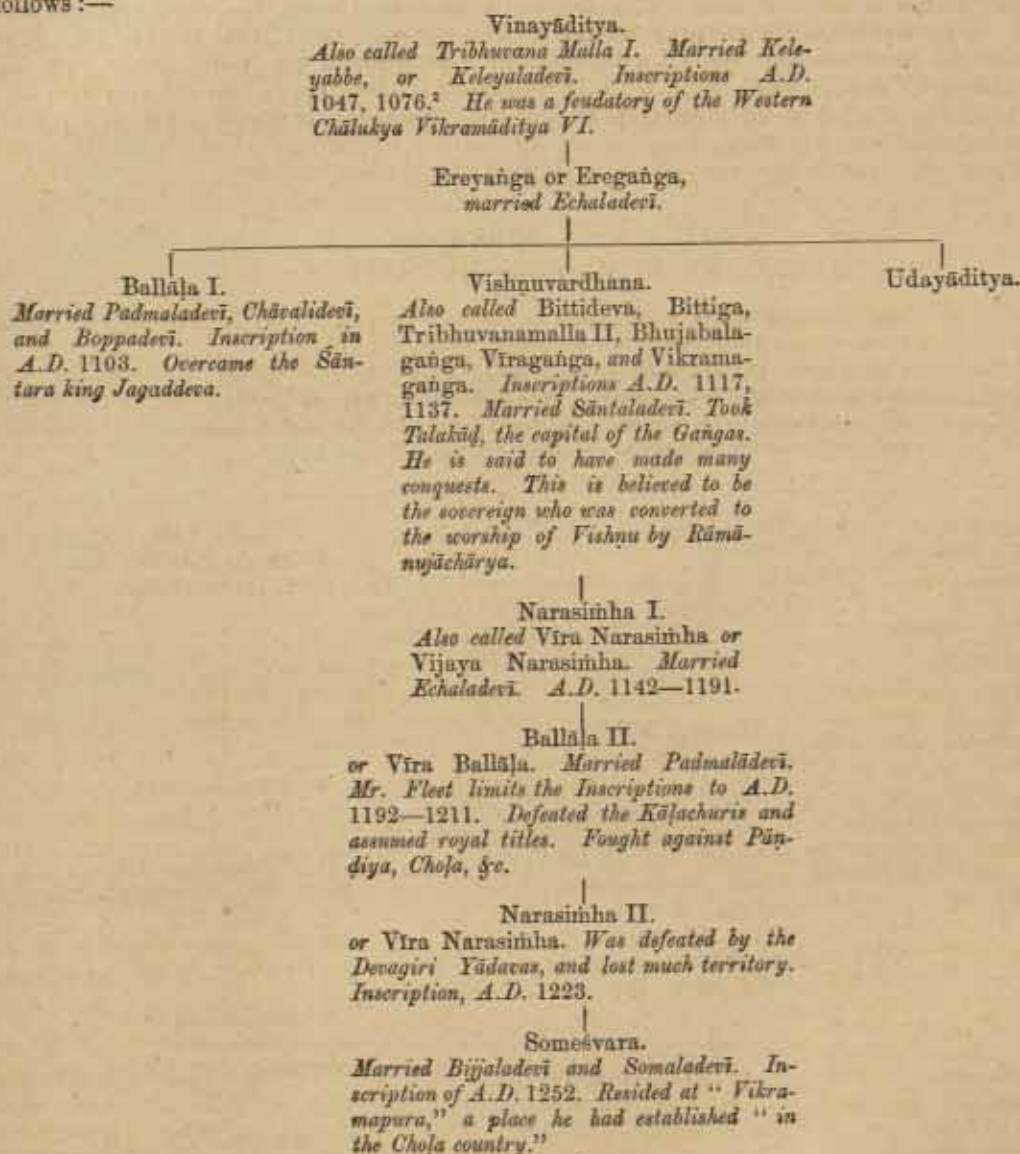 follows :—
Vinayāditya.
Also called Tribhuvana Malla I. Married Kele-
yabbe, or Keleyaladevī. Inscriptions A.D.
1047, 1076.² He was a feudatory of the Western
Chālukya Vikramāditya VI.
Ereyaṅga or Eregaṅga,
married Echaladevī.
Ballāḷa I.
Married Padmaladevī, Chāvalidevī,
and Boppadevī. Inscription in
A.D. 1103. Overcame the Śān-
tara king Jagaddeva.
Vishṇuvardhana.
Also called Bittideva, Bittiga,
Tribhuvanamalla II, Bhujabala-
gaṅga, Vīragaṅga, and Vikrama-
gaṅga. Inscriptions A.D. 1117,
1137. Married Sāntaladevī. Took
Talakāḍ, the capital of the Gaṅgas.
He is said to have made many
conquests. This is believed to be
the sovereign who was converted to
the worship of Vishṇu by Rāmā-
nujāchārya.
Udayāditya.
Narasiṁha I.
Also called Vīra Narasiṁha or
Vijaya Narasiṁha. Married
Echaladevī. A.D. 1142—1191.
Ballāḷa II.
or Vīra Ballāḷa. Married Padmalādevī.
Mr. Fleet limits the Inscriptions to A.D.
1192—1211. Defeated the Kāḷachuris and
assumed royal titles. Fought against Pāṇ-
ḍiya, Choḷa, &c.
Narasiṁha II.
or Vīra Narasiṁha. Was defeated by the
Devagiri Yādavas, and lost much territory.
Inscription, A.D. 1223.
Someśvara.
Married Bijjaladevī and Somaladevī. In-
scription of A.D. 1252. Resided at " Vikra-
mapura," a place he had established " in
the Choḷa country."